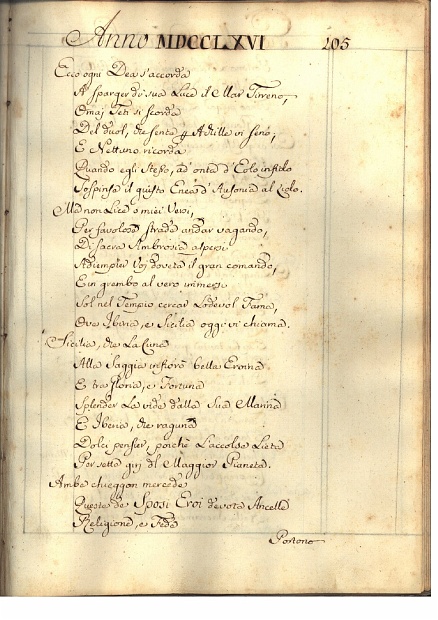 Anno MDCCLXVI 205
Ecco ogni Dea s'accorda
A' sparger di sua Luce il Mar Tirreno,
Omaj Teti si scorda
Del duol, che sente Achille in seno;
E Nettuno ricorda
Quando egli stesso, ad' onta d'Eolo
Sospinse il giusto Enea d'Ausonia al
Ma non Lice o miei Versi,
Per favolose strade andar vagando,
Di sacra Ambrosia aspersi
Adempier Voi dovete il gran comando,
E in grembo al vero immersi
Sol nel Tempio cercar Lodevol Fama,
Ove Iberia, e Sicilia oggi vi chiama.
Sicilia, che La Cuna
Alla Saggia bella Eroina
E tra Gloria, e Fortuna
Splender La vide dalla Sua Marina
E Iberia, che raguna
Dolci pensier, poichè L'accolse Lieta
Per del Maggior Pianeta.
Ambe chieggon mercede
Queste de Sposi Eroi devote Ancelle
Religione, e Fede
Portono